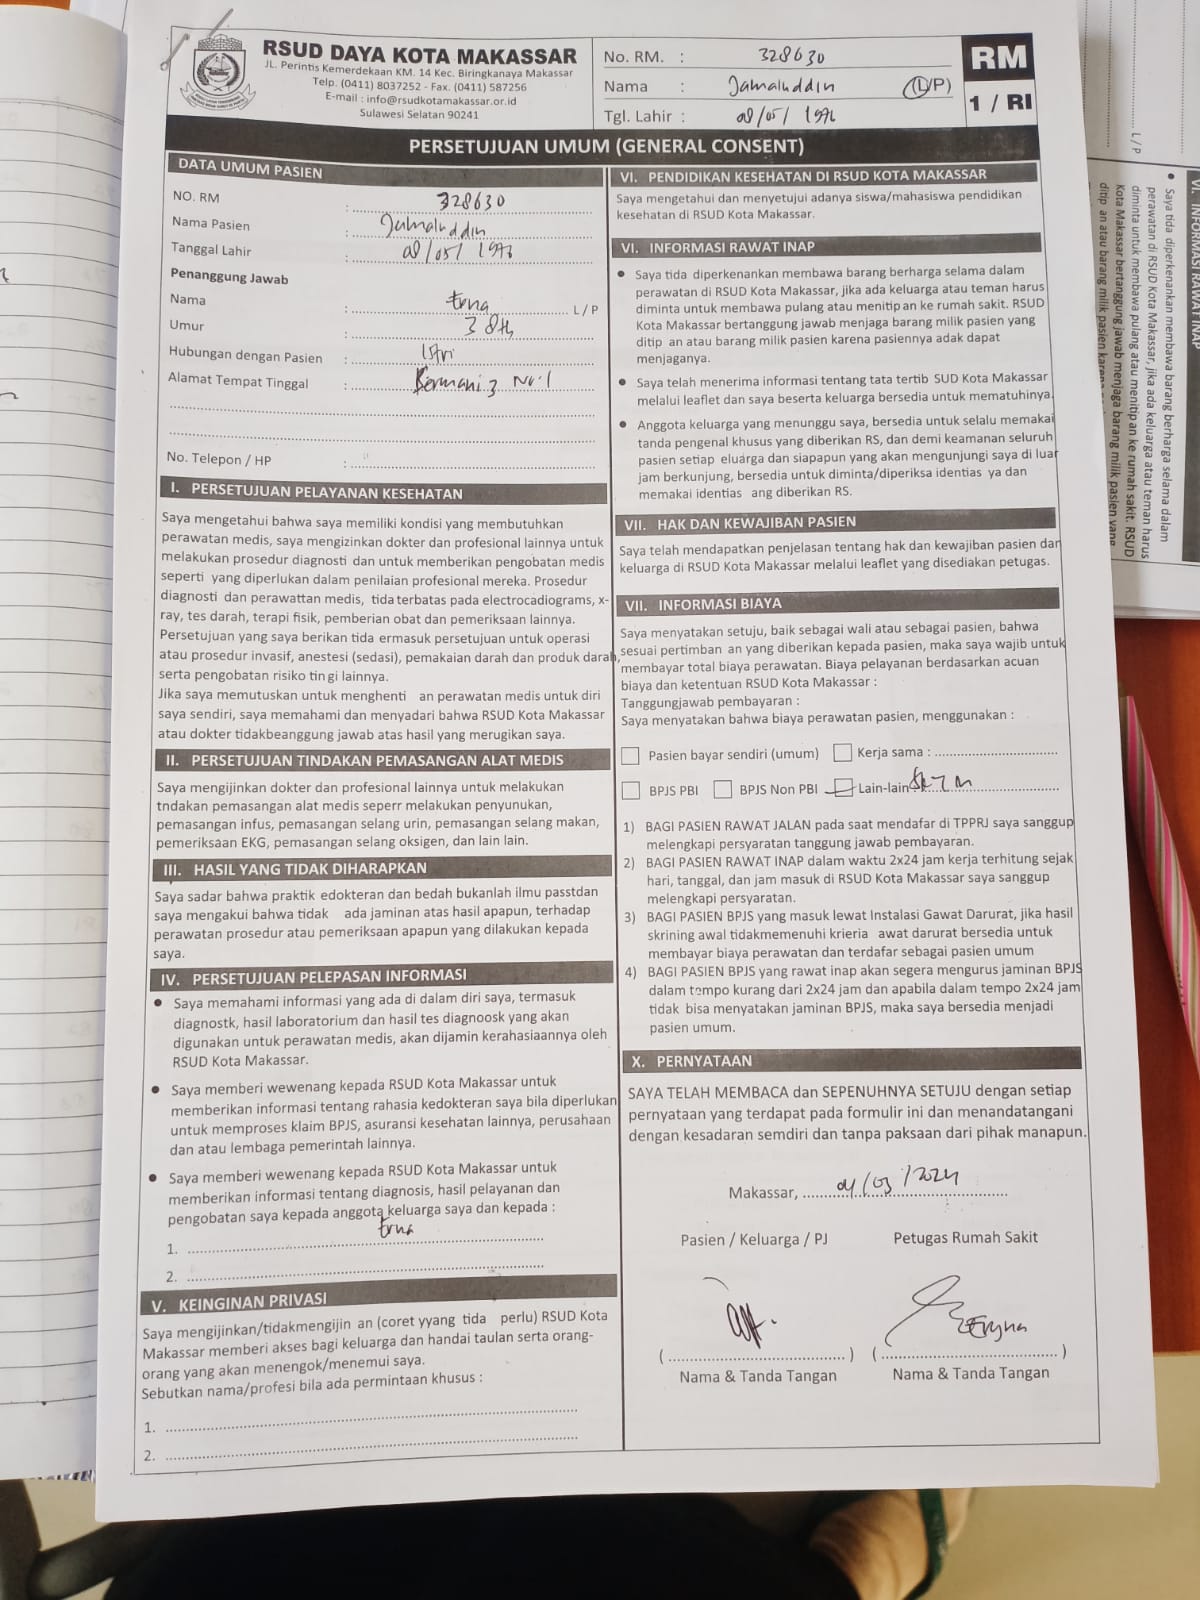 RSUD DAYA KOTA MAKASSAR
JL. Perintis Kemerdekaan KM. 14 Kec. Biringkanaya Makassar
Telp. (0411) 8037252 - Fax. (0411) 587256
E-mail : info@rsudkotamakassar.or.id
Sulawesi Selatan 90241
No. RM. : 328630
Nama : Jamaluddin (L/P)
Tgl. Lahir : 08/05/1976
RM
1 / RI
PERSETUJUAN UMUM (GENERAL CONSENT)
DATA UMUM PASIEN
NO. RM : 328630
Nama Pasien : Jamaluddin
Tanggal Lahir : 08/05/1976
Penanggung Jawab
Nama : Erna L / P
Umur : 38th
Hubungan dengan Pasien : Istri
Alamat Tempat Tinggal : 3 No.1
No. Telepon / HP :
I. PERSETUJUAN PELAYANAN KESEHATAN
Saya mengetahui bahwa saya memiliki kondisi yang membutuhkan
perawatan medis, saya mengizinkan dokter dan profesional lainnya untuk
melakukan prosedur diagnosti dan untuk memberikan pengobatan medis
seperti yang diperlukan dalam penilaian profesional mereka. Prosedur
diagnosti dan perawattan medis, tida terbatas pada electrocadiograms, x-
ray, tes darah, terapi fisik, pemberian obat dan pemeriksaan lainnya.
Persetujuan yang saya berikan tida ermasuk persetujuan untuk operasi
atau prosedur invasif, anestesi (sedasi), pemakaian darah dan produk darah,
serta pengobatan risiko tin gi lainnya.
Jika saya memutuskan untuk menghenti an perawatan medis untuk diri
saya sendiri, saya memahami dan menyadari bahwa RSUD Kota Makassar
atau dokter tidakbeanggung jawab atas hasil yang merugikan saya.
II. PERSETUJUAN TINDAKAN PEMASANGAN ALAT MEDIS
Saya mengijinkan dokter dan profesional lainnya untuk melakukan
tndakan pemasangan alat medis seperr melakukan penyunukan,
pemasangan infus, pemasangan selang urin, pemasangan selang makan,
pemeriksaan EKG, pemasangan selang oksigen, dan lain lain.
III. HASIL YANG TIDAK DIHARAPKAN
Saya sadar bahwa praktik edokteran dan bedah bukanlah ilmu passtdan
saya mengakui bahwa tidak ada jaminan atas hasil apapun, terhadap
perawatan prosedur atau pemeriksaan apapun yang dilakukan kepada
saya.
IV. PERSETUJUAN PELEPASAN INFORMASI
• Saya memahami informasi yang ada di dalam diri saya, termasuk
diagnostk, hasil laboratorium dan hasil tes diagnoosk yang akan
digunakan untuk perawatan medis, akan dijamin kerahasiaannya oleh
RSUD Kota Makassar.
• Saya memberi wewenang kepada RSUD Kota Makassar untuk
memberikan informasi tentang rahasia kedokteran saya bila diperlukan
untuk memproses klaim BPJS, asuransi kesehatan lainnya, perusahaan
dan atau lembaga pemerintah lainnya.
• Saya memberi wewenang kepada RSUD Kota Makassar untuk
memberikan informasi tentang diagnosis, hasil pelayanan dan
pengobatan saya kepada anggota keluarga saya dan kepada :
1. Erna
2.
V. KEINGINAN PRIVASI
Saya mengijinkan/tidakmengijin an (coret yyang tida perlu) RSUD Kota
Makassar memberi akses bagi keluarga dan handai taulan serta orang-
orang yang akan menengok/menemui saya.
Sebutkan nama/profesi bila ada permintaan khusus :
1.
2.
VI. PENDIDIKAN KESEHATAN DI RSUD KOTA MAKASSAR
Saya mengetahui dan menyetujui adanya siswa/mahasiswa pendidikan
kesehatan di RSUD Kota Makassar.
VI. INFORMASI RAWAT INAP
• Saya tida diperkenankan membawa barang berharga selama dalam
perawatan di RSUD Kota Makassar, jika ada keluarga atau teman harus
diminta untuk membawa pulang atau menitip an ke rumah sakit. RSUD
Kota Makassar bertanggung jawab menjaga barang milik pasien yang
ditip an atau barang milik pasien karena pasiennya adak dapat
menjaganya.
• Saya telah menerima informasi tentang tata tertib SUD Kota Makassar
melalui leaflet dan saya beserta keluarga bersedia untuk mematuhinya.
• Anggota keluarga yang menunggu saya, bersedia untuk selalu memakai
tanda pengenal khusus yang diberikan RS, dan demi keamanan seluruh
pasien setiap eluarga dan siapapun yang akan mengunjungi saya di luar
jam berkunjung, bersedia untuk diminta/diperiksa identias ya dan
memakai identias ang diberikan RS.
VII. HAK DAN KEWAJIBAN PASIEN
Saya telah mendapatkan penjelasan tentang hak dan kewajiban pasien dan
keluarga di RSUD Kota Makassar melalui leaflet yang disediakan petugas.
VII. INFORMASI BIAYA
Saya menyatakan setuju, baik sebagai wali atau sebagai pasien, bahwa
sesuai pertimban an yang diberikan kepada pasien, maka saya wajib untuk
membayar total biaya perawatan. Biaya pelayanan berdasarkan acuan
biaya dan ketentuan RSUD Kota Makassar :
Tanggungjawab pembayaran :
Saya menyatakan bahwa biaya perawatan pasien, menggunakan :
Pasien bayar sendiri (umum) Kerja sama :
BPJS PBI BPJS Non PBI Lain-lain
1) BAGI PASIEN RAWAT JALAN pada saat mendafar di TPPRJ saya sanggup
melengkapi persyaratan tanggung jawab pembayaran.
2) BAGI PASIEN RAWAT INAP dalam waktu 2x24 jam kerja terhitung sejak
hari, tanggal, dan jam masuk di RSUD Kota Makassar saya sanggup
melengkapi persyaratan.
3) BAGI PASIEN BPJS yang masuk lewat Instalasi Gawat Darurat, jika hasil
skrining awal tidakmemenuhi krieria awat darurat bersedia untuk
membayar biaya perawatan dan terdafar sebagai pasien umum
4) BAGI PASIEN BPJS yang rawat inap akan segera mengurus jaminan BPJS
dalam tempo kurang dari 2x24 jam dan apabila dalam tempo 2x24 jam
tidak bisa menyatakan jaminan BPJS, maka saya bersedia menjadi
pasien umum.
X. PERNYATAAN
SAYA TELAH MEMBACA dan SEPENUHNYA SETUJU dengan setiap
pernyataan yang terdapat pada formulir ini dan menandatangani
dengan kesadaran semdiri dan tanpa paksaan dari pihak manapun.
Makassar, 04/03/2024
Pasien / Keluarga / PJ Petugas Rumah Sakit
( ) ( )
Nama & Tanda Tangan Nama & Tanda Tangan
L / P
VI. INFORMASI RAWAT INAP
• Saya tida diperkenankan membawa barang berharga selama dalam
perawatan di RSUD Kota Makassar, jika ada keluarga atau teman harus
diminta untuk membawa pulang atau menitip an ke rumah sakit. RSUD
Kota Makassar bertanggung jawab menjaga barang milik pasien yang
ditip an atau barang milik pasien